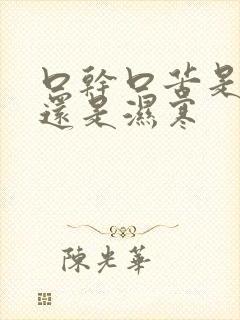 口幹口苦是
還是濕寒
陳光華